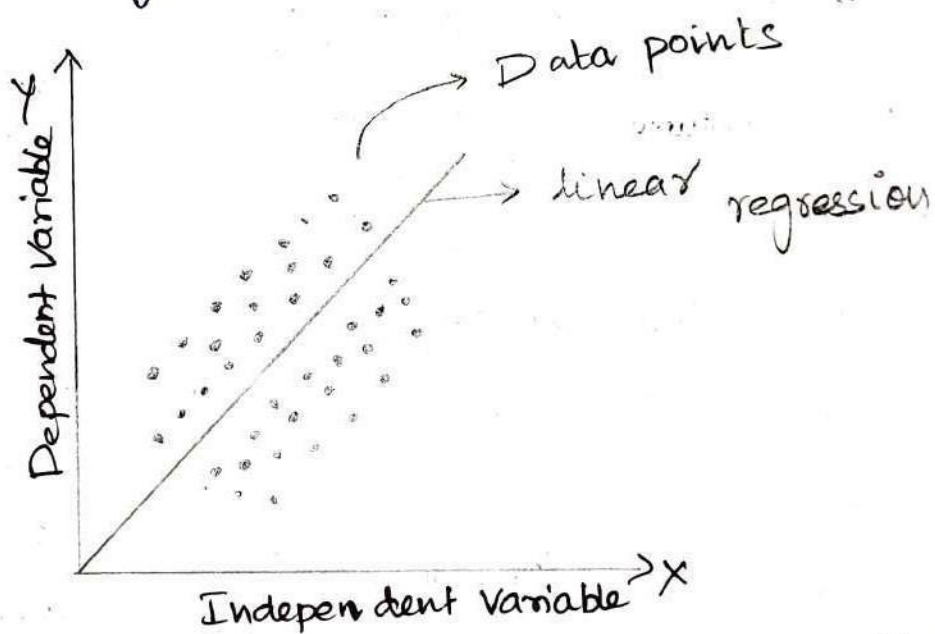 Data points
linear regression
Dependent Variable Y
Independent Variable X